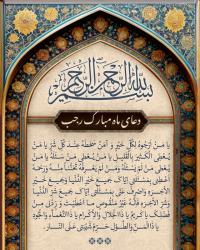 بسم الله الرحمن الرحيم
دعای ماه مبارک رجب
يَا مَنْ أَرْجُوهُ لِكُلِّ خَيْرٍ وَ آمَنُ سَخَطَهُ عِنْدَ كُلِّ شَرٍّ يَا مَنْ
يُعْطِي الْكَثِيرَ بِالْقَلِيلِ يَا مَنْ يُعْطِي مَنْ سَأَلَهُ يَا مَنْ
يُعْطِي مَنْ لَمْ يَسْأَلْهُ وَ مَنْ لَمْ يَعْرِفْهُ تَحَنُّناً مِنْهُ وَ رَحْمَةً
أَعْطِنِي بِمَسْأَلَتِي إِيَّاكَ جَمِيعَ خَيْرِ الدُّنْيَا وَ جَمِيعَ خَيْرِ
الْآخِرَةِ وَ اصْرِفْ عَنِّي بِمَسْأَلَتِي إِيَّاكَ جَمِيعَ شَرِّ الدُّنْيَا
وَ شَرِّ الْآخِرَةِ فَإِنَّهُ غَيْرُ مَنْقُوصٍ مَا أَعْطَيْتَ وَ زِدْنِي مِنْ
فَضْلِكَ يَا كَرِيمُ يَا ذَا الْجَلَالِ وَ الْإِكْرَامِ يَا ذَا النَّعْمَاءِ وَ الْجُودِ
يَا ذَا الْمَنِّ وَ الطَّوْلِ حَرِّمْ شَيْبَتِي عَلَى النَّارِ.